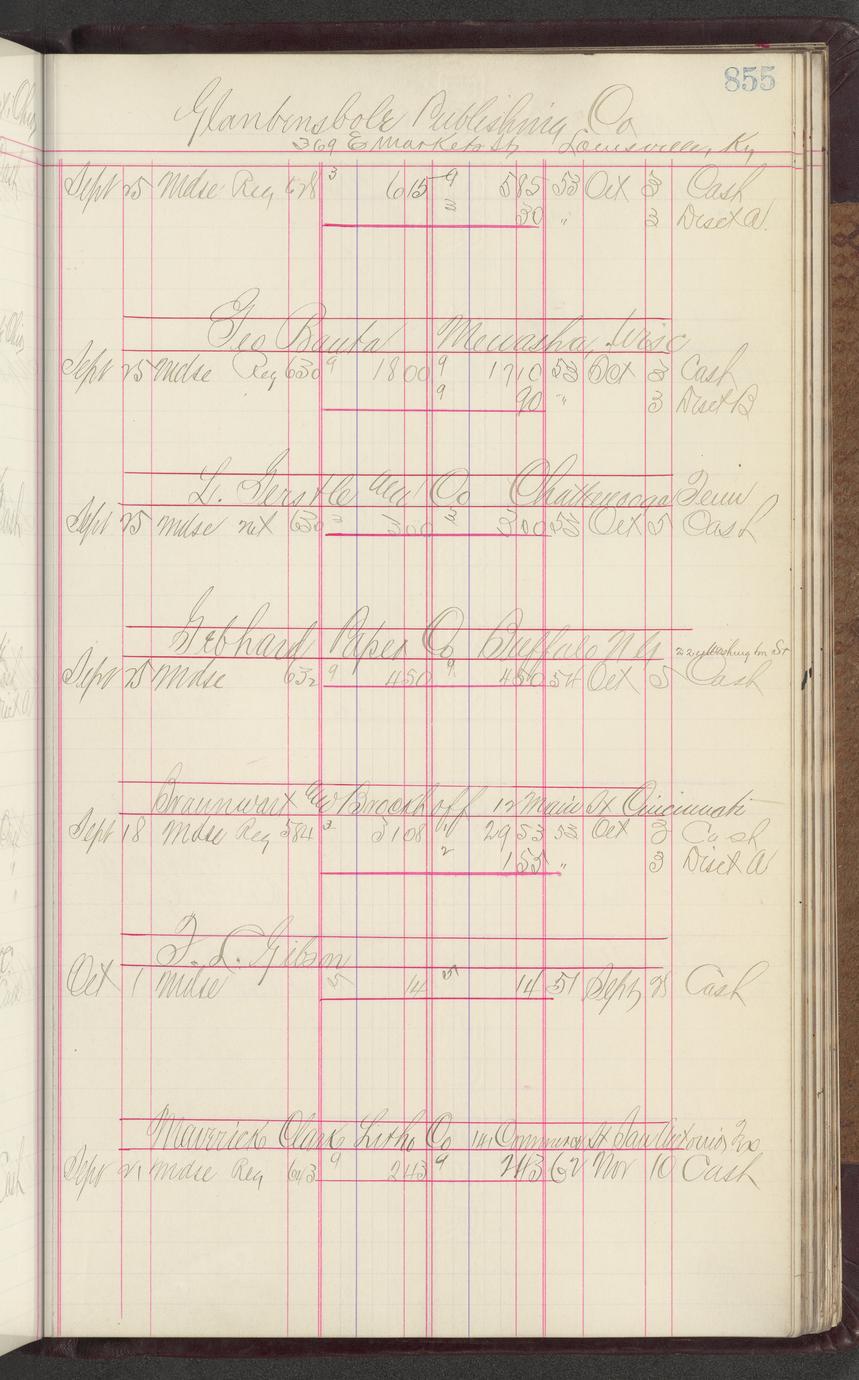 855
Publishing Co
369 E Market St Louisville, Ky
Sept 25 Mdse Reg 628 3 615 9 585 53 Oct 3 Cash
3 30 " 3 Disct A
Geo Banta Menasha, Wisc
Sept 25 Mdse Reg 630 9 1800 9 1710 53 Oct 3 Cash
9 90 " 3 Disct B
L. Gerstle Co Chattanooga Tenn
Sept 25 mdse net 630 3 300 3 300 53 Oct 5 Cash
Gebhard Paper Co Buffalo NY Washington St
Sept 25 Mdse 632 9 450 9 450 54 Oct 5 Cash
Braunwart Brockhoff 12 Main St Cincinnati
Sept 18 Mdse Reg 584 3 3108 1 2953 53 Oct 3 Cash
2 155 " 3 Disct A
F. L. Gibson
Oct 1 Mdse 5 14 5 14 51 Sept 28 Cash
Maverick Clark Litho Co Commerce St San Antonio Tx
Sept 21 Mdse Reg 643 9 243 9 243 62 Nov 10 Cash